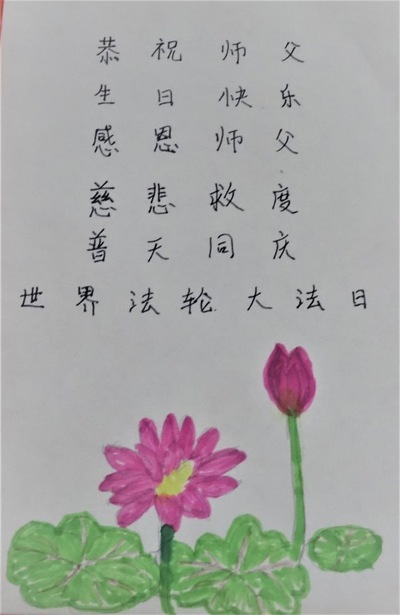 恭祝师父
生日快乐
感恩师父
慈悲救度
普天同庆
世界法轮大法日